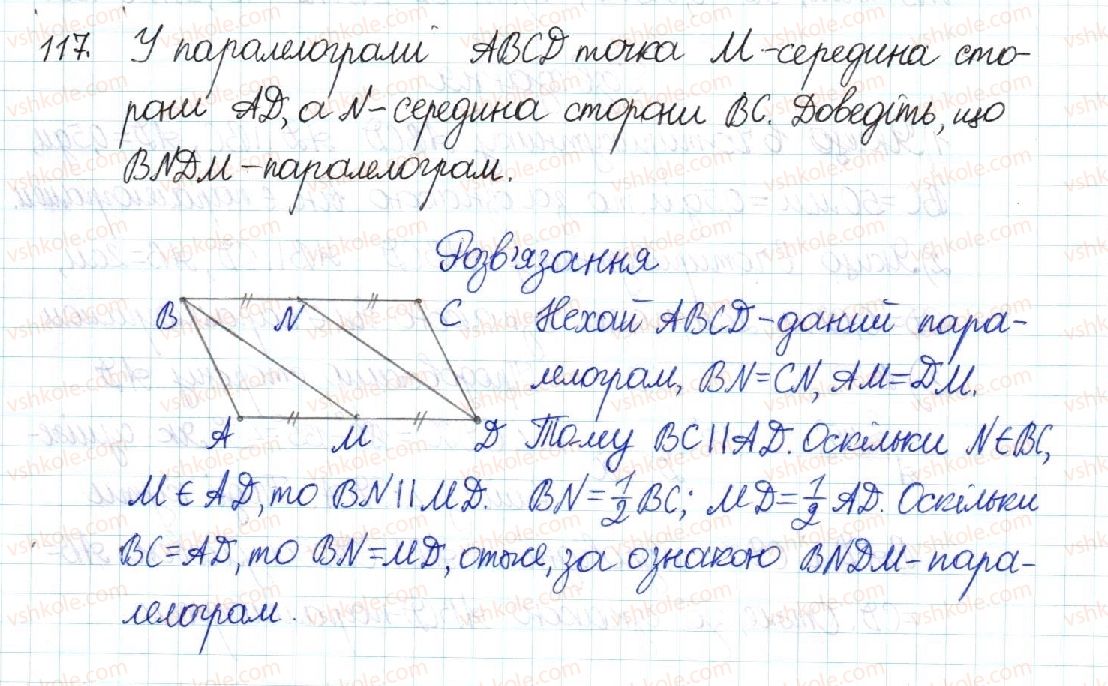 117. У паралелограмі ABCD точка M-середина сто-
рони AD, а N-середина сторони BC. Доведіть, що
BNDM-паралелограм.
Розв'язання
B N C Нехай ABCD-даний пара-
лелограм, BN=CN, AM=DM.
A M D Тому BC||AD. Оскільки N∈BC,
M∈AD, то BN||MD. BN=1/2 BC; MD=1/2 AD. Оскільки
BC=AD, то BN=MD, отже, за ознакою BNDM-пара-
лелограм.